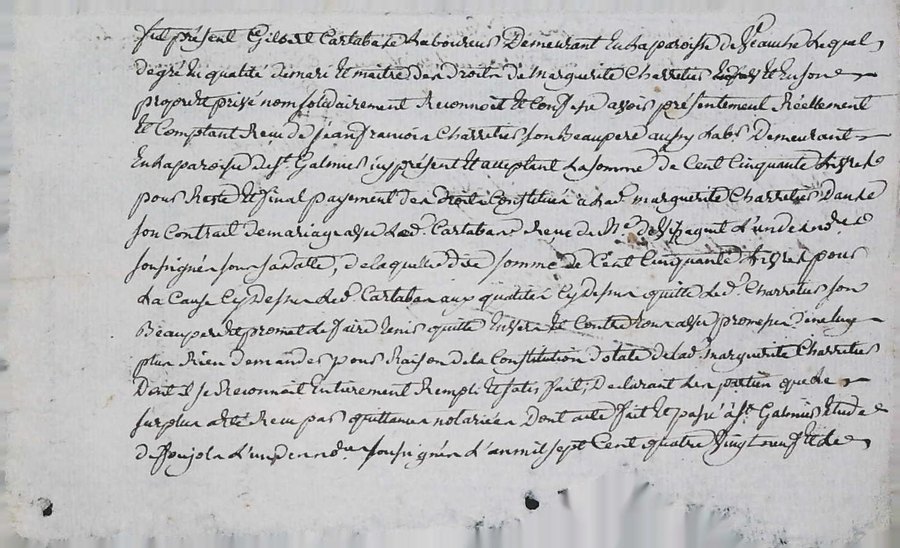 fut présent Gilbert Cartaba Laboureur Demeurant En La paroisse de Veauche Lequel
de gré En qualité de mari Et maitre des Droits de marguerite Charretier Et En son
propre Et privé nom solidairement Reconnoit Et Confesse avoir présentement Réellement
Et Comptant Reçu de jean francois Charretier son Beaupere aussy Labr. Demeurant
En La paroisse de St. Galmier icy présent Et acceptant La somme de Cent Cinquante Livres
pour Reste Et final payement des Droits Constitués a Lad. marguerite Charretier Dans
son Contrat de mariage avec Led. Cartaba Reçu de Me. L'un des nores
soussignés sous sa datte, de laquelle dite somme de Cent Cinquante Livres pour
La Cause Cy Dessus Led. Cartaba aux qualités Cy Dessus quitte Led. Charretier son
Beaupere Et promet Le faire tenir quitte Envers Et Contre tous avec promesse de ne Luy
plus Rien demander pour Raison de La Constitution dotale de Lad. marguerite Charretier
Dont il se Reconnoit Entierement Rempli Et satisfait, Declarant Les parties que Le
surplus a été Reçu par quittances notariées Dont acte fait Et passé a St. Galmier Etude
de L'un des nores soussignés L'an mil sept Cent quatre Vingt neuf Et Le